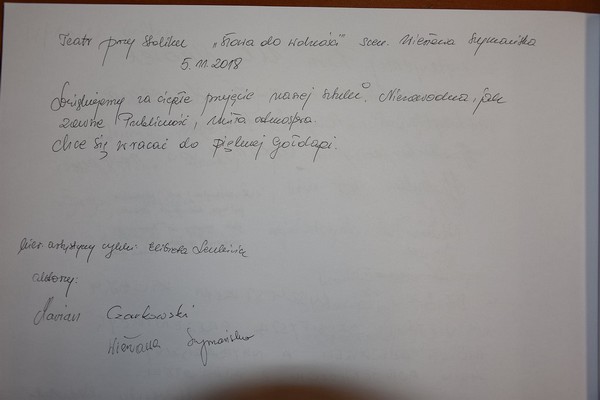 Teatr przy stoliku „Słowa do wolności" scen. Wiesława Szymańska
5.11.2018
Dziękujemy za ciepłe przyjęcie naszej sztuki. Niezawodna, jak
zawsze Publiczność, miła atmosfera.
Chce się wracać do pięknej Gołdapi.
kier. artystyczny cyklu: Elżbieta
aktorzy:
Marian Czarkowski
Wiesława Szymańska